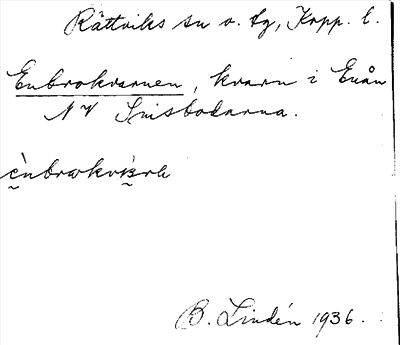 Rättviks sn o. tg, Kopp. l.
Enbrokvarnen, kvarn i Enån
NV Snisbodarna.
B. Lindén 1936.